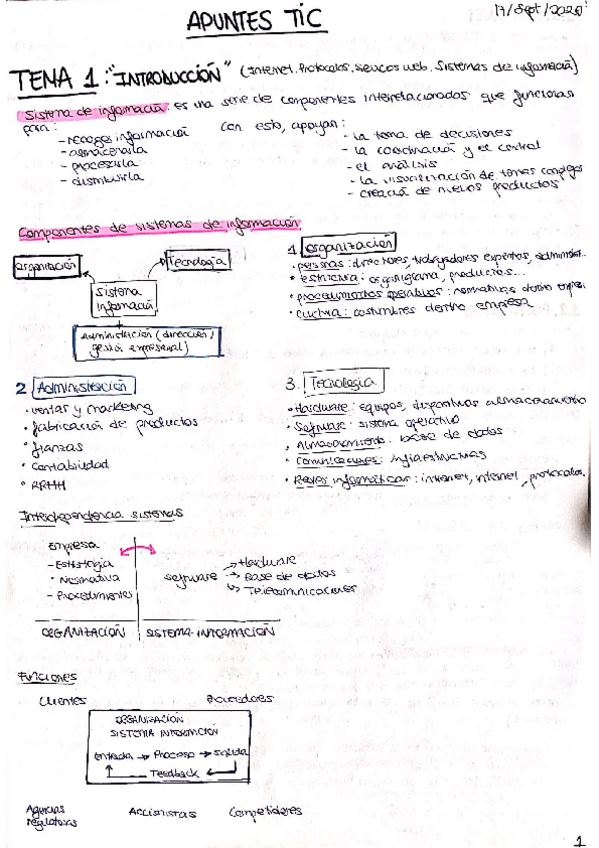 APUNTES TIC
17/Sept/2020
TEMA 1: "INTRODUCCIÓN" (Internet, Protocolos, servicios web, Sistemas de información)
Sistema de información: es una serie de componentes interrelacionados que funcionan
para: Con esto, apoyan:
- recoger información
- almacenarla
- procesarla
- distribuirla
- La toma de decisiones
- La coordinación y el control
- el análisis
- La visualización de temas complejos
- creación de nuevos productos
Componentes de sistemas de información
organización
Tecnología
Sistema
Información
Administración (dirección,
gestión empresarial)
1. organización
· personas: directores, trabajadores expertos, administ..
· estructura: organigrama, productos...
· procedimientos operativos: normativas dentro
· cultura: costumbres dentro empresa
2. Administración
· ventas y marketing
· fabricación de productos
· finanzas
· Contabilidad
· RRHH
3. Tecnología
· Hardware: equipos, dispositivos almacenamiento
· Software: sistema operativo
· Almacenamiento: base de datos
· Comunicaciones: infraestructuras
· Redes informáticas: intranet, internet, protocolos.
Interdependencia sistemas
Empresa
- Estrategia
· Normativa
- Procedimientos
software → Hardware
→ Base de datos
→ Telecomunicaciones
ORGANIZACIÓN
SISTEMA INFORMACIÓN
Funciones
Clientes
Proveedores
ORGANIZACIÓN
SISTEMA INFORMACIÓN
Entrada → Proceso → Salida
Feedback
Agencias
reguladoras
Accionistas
Competidores
1